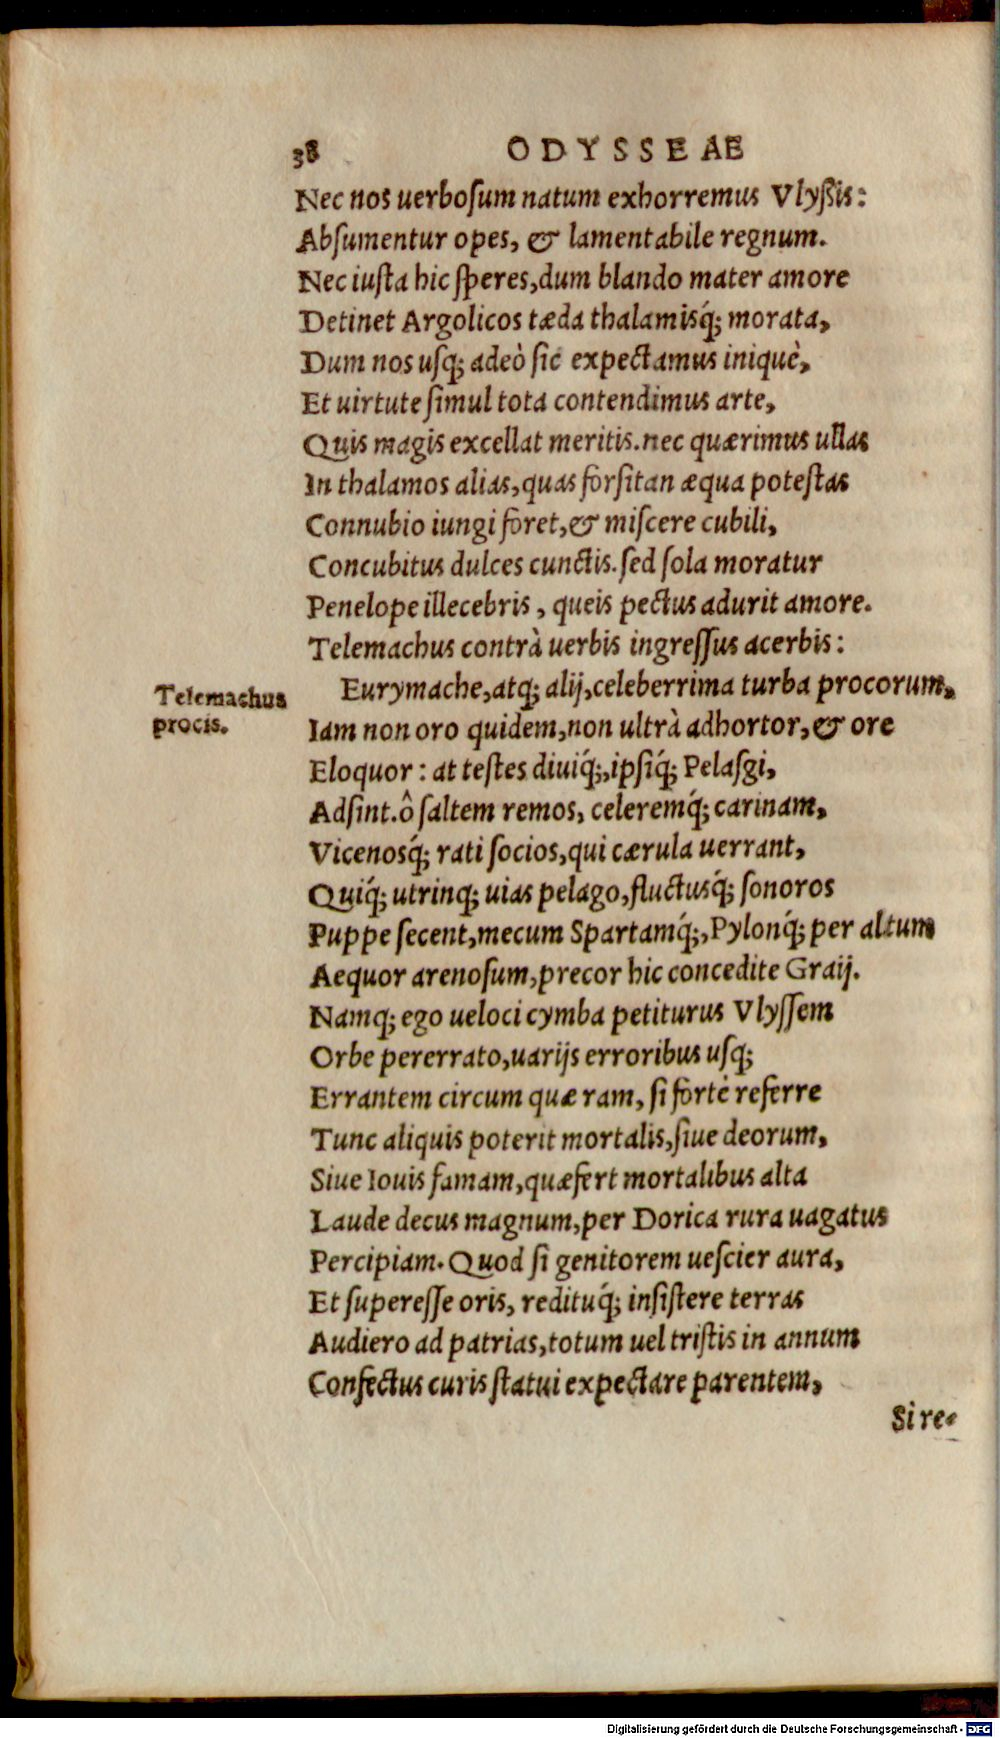 38 ODYSSEAE
Nec nos uerboſum natum exhorremus Vlyßis:
Abſumentur opes, & lamentabile regnum.
Nec iuſta hic ſperes, dum blando mater amore
Detinet Argolicos tæda thalamisq́; morata,
Dum nos uſq; adeò ſic expectamus iniquè,
Et uirtute ſimul tota contendimus arte,
Quis magis excellat meritis. nec quærimus ullas
In thalamos alias, quas forſitan æqua poteſtas
Connubio iungi foret, & miſcere cubili,
Concubitus dulces cunctis. ſed ſola moratur
Penelope illecebris, queis pectus adurit amore.
Telemachus contrà uerbis ingreſſus acerbis:
Telemachus
procis.
Eurymache, atq; alij, celeberrima turba procorum,
Iam non oro quidem, non ultrà adhortor, & ore
Eloquor: at teſtes diuiq́;, ipſiq́; Pelaſgi,
Adſint. ô ſaltem remos, celeremq́; carinam,
Vicenosq́; rati ſocios, qui cærula uerrant,
Quiq́; utrinq; uias pelago, fluctusq́; ſonoros
Puppe ſecent, mecum Spartamq́;, Pylonq́; per altum
Aequor arenoſum, precor hic concedite Graij.
Namq; ego ueloci cymba petiturus Vlyſſem
Orbe pererrato, uarijs erroribus uſq;
Errantem circum quæram, ſi fortè referre
Tunc aliquis poterit mortalis, ſiue deorum,
Siue Iouis famam, quæ fert mortalibus alta
Laude decus magnum, per Dorica rura uagatus
Percipiam. Quod ſi genitorem ueſcier aura,
Et ſupereſſe oris, redituq́; inſiſtere terras
Audiero ad patrias, totum uel triſtis in annum
Confectus curis ſtatui expectare parentem,
Si re-
Digitalisierung gefördert durch die Deutsche Forschungsgemeinschaft - DFG